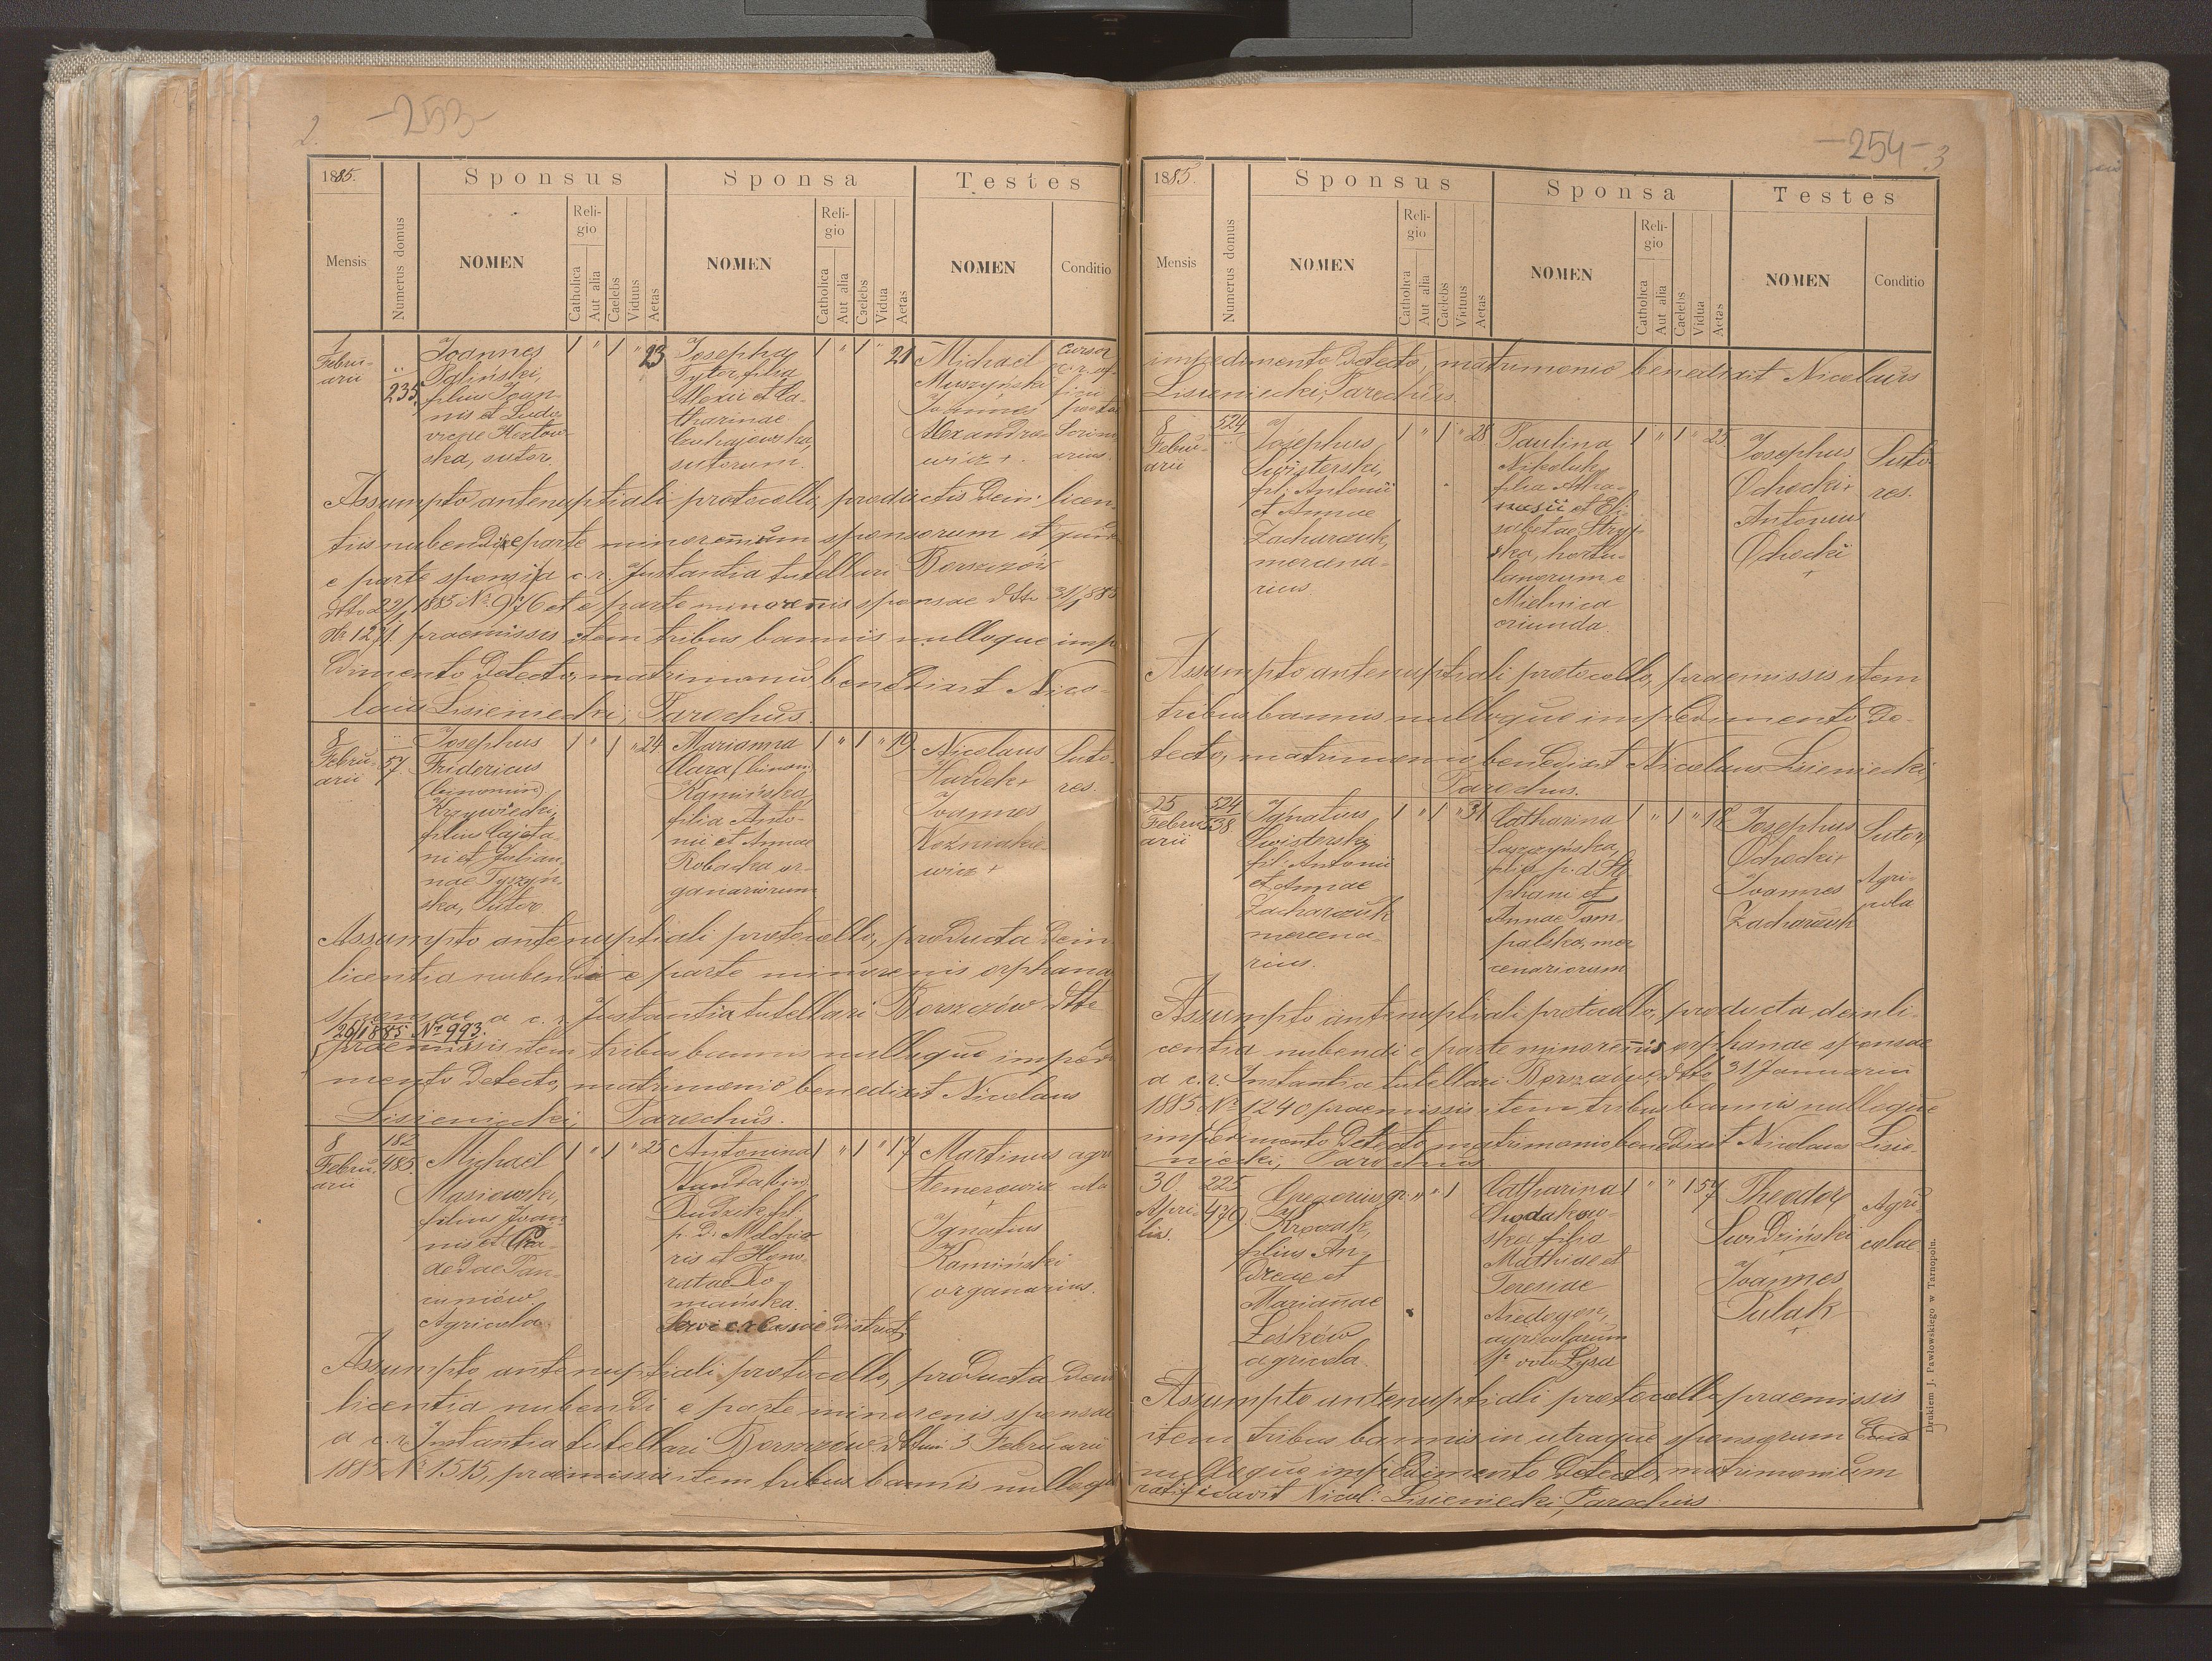 2.
-253-
1885.
Sponsus
Sponsa
Testes
Mensis
Numerus domus
NOMEN
Religio
Catholica
Aut alia
Caelebs
Viduus
Aetas
NOMEN
Religio
Catholica
Aut alia
Caelebs
Vidua
Aetas
NOMEN
Conditio
1
Febru-
arii
235.
Joannes
filius Joan-
nis et Ludo-
vicae
ska, sutor.
1 " 1 " 23
Josepha
filia
Alexii et Ca-
tharinae
sutorum.
1 " 1 21
Michael
Muszyński
Joannes
Alexandro-
wicz +.
Cursor
Assumpto antenuptiali protocollo, productis dein licen-
tiis nubendi e parte minorennium sponsorum et quidem
e parte sponsi a c. r. Instantia tutellari Borszczów
dtto 22/1 1885 Nr 976 et e parte minorennis sponsae dtto 31/1 885
Nr 1271. praemissis item tribus bannis nulloque impe
dimento detecto, matrimonio benedixit Nico-
laus Lisieniecki, Parochus.
8
Febru-
arii
57
Josephus
Fridericus
(binomin)
Krzywiecki,
filius Cajeta-
ni et Julian-
nae Tyszyń-
ska, sutor.
1 " 1 " 24
Marianna
Clara (binom)
Kamińska,
filia Anto-
nii et Annae
Robacka or-
ganariorum
1 " 1 " 19
Nicolaus
Hurdek +
Joannes
Kozniakie-
wicz +
Suto-
res.
Assumpto antenuptiali protocollo, producta dein
licentia nubendi e parte minorenis orphanae
sponsae a c. r. Instantia tutellari Borszczów dtto
26/1 1885 Nr 993.
praemissis item tribus bannis nulloque impedi
mento detecto, matrimonio benedixit Nicolaus
Lisieniecki, Parochus.
8
Febru-
arii
182
485.
Michael
Masiowski,
filius Joan-
nis et
Agricola
1 " 1 " 25
Antonina
Wanda bin.
Dudzik, fil.
p. d. Melchio
ris et Hono-
ratae Do-
mańska.
1 " 1 " 17
Martinus
+
Ignatius
Kamiński
organarius.
Assumpto antenuptiali protocollo, producta dein
licentia nubendi e parte minorenis sponsae
a c. r. Instantia tutellari Borszczów dttum 3 Februarii
1885 Nr 1515, praemissis item tribus bannis nulloque
-254-
3
1885.
Sponsus
Sponsa
Testes
Mensis
Numerus domus
NOMEN
Religio
Catholica
Aut alia
Caelebs
Viduus
Aetas
NOMEN
Religio
Catholica
Aut alia
Caelebs
Vidua
Aetas
NOMEN
Conditio
impedimento detecto, matrimonio benedixit Nicolaus
Lisieniecki, Parochus.
8
Febru-
arii
524
Josephus
Swisterski,
fil. Antonii
et Annae
Zacharczuk,
mercena-
rius
1 " 1 " 28
Paulina
Nikoluk,
filia Atha-
nasii et Eli-
sabetae Stryj-
ska, hortu-
lanorum e
Mielnica
oriunda.
1 " 1 " 25
Josephus
Ochocki +
Antonius
Ochocki
+
Suto
res.
Assumpto antenuptiali protocollo, praemissis item
tribus bannis nulloque impedimento de-
tecto, matrimonio benedixit Nicolaus Lisieniecki,
Parochus.
25
Febru-
arii
524
538
Ignatius
Swisterski
fil. Antonii
et Annae
Zacharczuk
mercena-
rius.
1 " 1 " 31
Catharina
Laszczyńska,
filia p. d. Ste
phani et
Annae Tom-
palska, mer
cenariorum
1 " 1 " 18
Josephus
Ochocki +
Joannes
Zacharczuk
Sutor,
Agri-
cola
Assumpto antenuptiali protocollo, producta dein li-
centia nubendi e parte minorennis orphanae sponsae
a c. r. Instantia tutellari Borszczów, dtto 31 Januarii
1885 Nr 1240 praemissis item tribus bannis nulloque
impedimento detecto matrimonio benedixit Nicolaus Lisie-
niecki, Parochus
30
Apri-
lis.
225
479
Gregorius
Kroczak,
filius An-
dreae et
Mariannae
Leśków
agricola.
gr. " " 1
Catharina
Chodakow-
ska filia
Mathiae et
Teresiae
Niedogon,
agricolarum
1o voto Łysa
1 " " 1 57
Theodor
Swidziński
+
Joannes
Pulak
+
Agri-
colae
Assumpto antenuptiali protocollo praemissis
item tribus bannis in utraque sponsorum
nulloque impedimento detecto, matrimonium
ratificavit Nicol: Lisieniecki, Parochus
Drukiem J. Pawłowskiego w Tarnopolu.